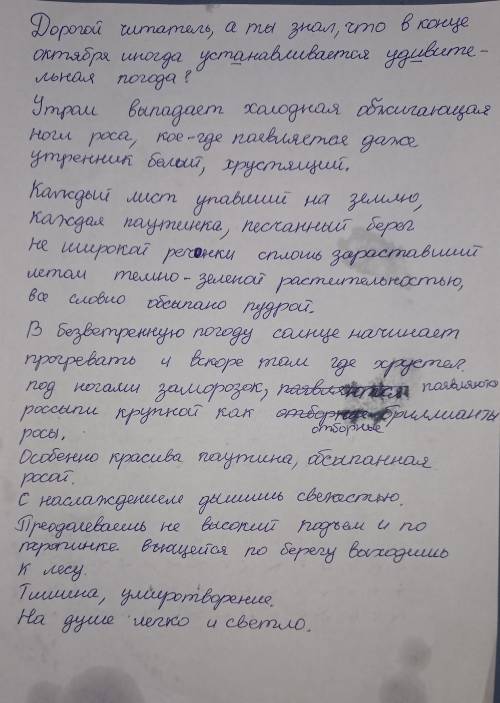 Дорогой читатель, а ты знал, что в конце
октября иногда устанавливается удивите-
льная погода?
Утром выпадает холодная обжигающая
ноги роса, кое-где появляется даже
утренник белый, хрустящий.
Каждый лист упавший на землю,
каждая паутинка, песчанный берег
не широкой речонки сплошь зараставший
летом темно-зеленой растительностью,
все словно обсыпано пудрой.
В безветренную погоду солнце начинает
прогревать и вскоре там где хрустел
под ногами заморозок, появляются
россыпи крупной как отборные бриллианты
росы.
Особенно красива паутина, обсыпанная
росой.
С наслаждением дышишь свежестью.
Преодалеваешь не высокий подъем и по
тропинке вьющейся по берегу выходишь
к лесу.
Тишина, умиротворение.
На душе легко и светло.